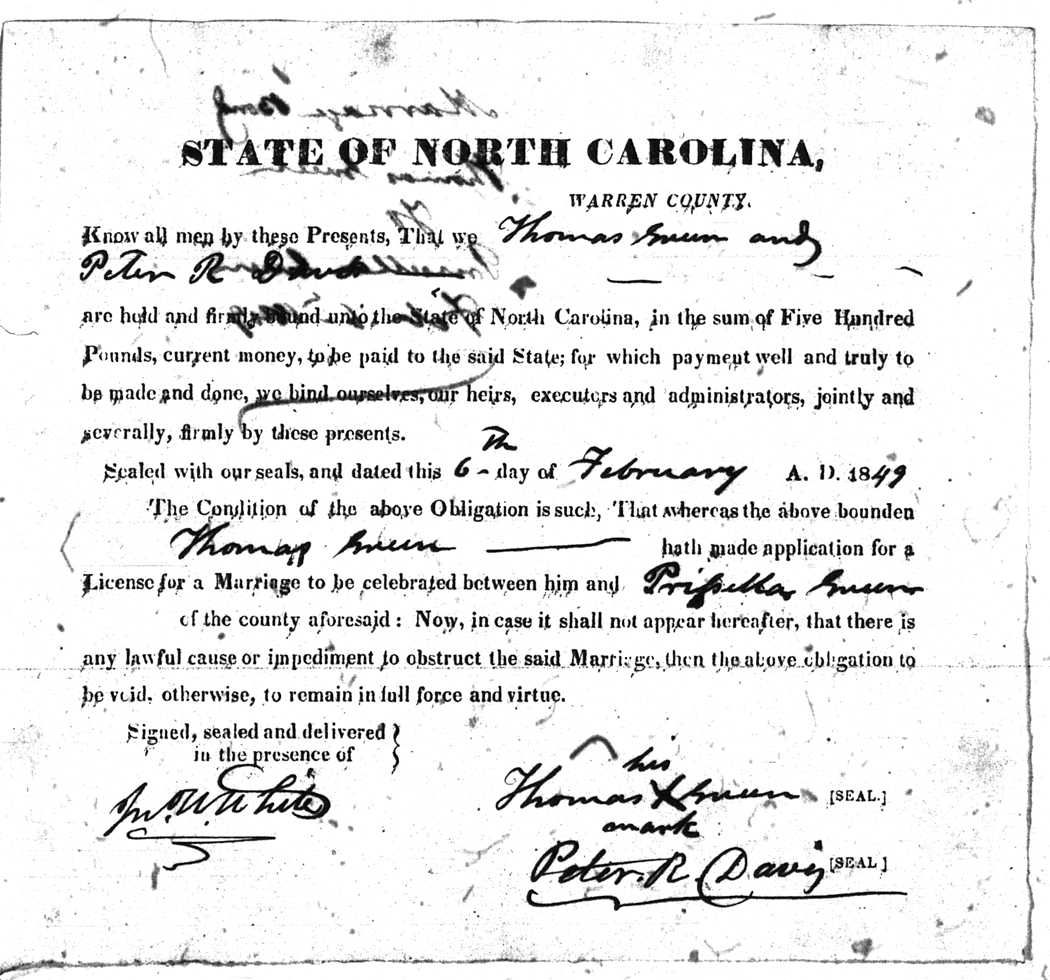 Marriage Bond
STATE OF NORTH CAROLINA,
Thomas Green
WARREN COUNTY.
To
Know all men by these Presents, That we Thomas Green and
Peter R Davis
are held and firmly bound unto the State of North Carolina, in the sum of Five Hundred
Pounds, current money, to be paid to the said State; for which payment well and truly to
be made and done, we bind ourselves, our heirs, executors and administrators, jointly and
severally, firmly by these presents.
Sealed with our seals, and dated this 6th day of February A. D. 1849
The Condition of the above Obligation is such, That whereas the above bounden
Thomas Green hath made application for a
License for a Marriage to be celebrated between him and Prissella Green
of the county aforesaid: Now, in case it shall not appear hereafter, that there is
any lawful cause or impediment to obstruct the said Marriage, then the above obligation to
be void, otherwise, to remain in full force and virtue.
Signed, sealed and delivered
in the presence of
his
Thomas X Green [SEAL.]
mark
Jno. W. White
Peter. R. Davis [SEAL]